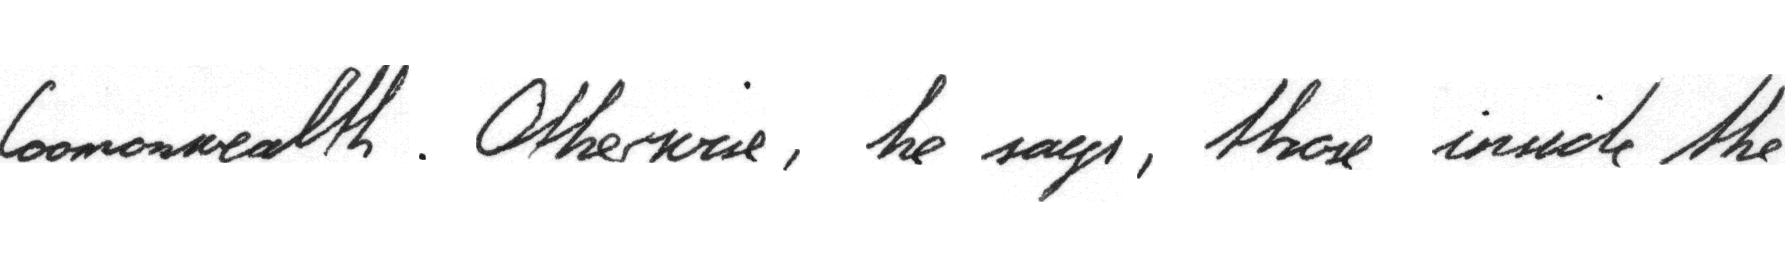 Coomonwealth. Otherwise, he says, those inside the